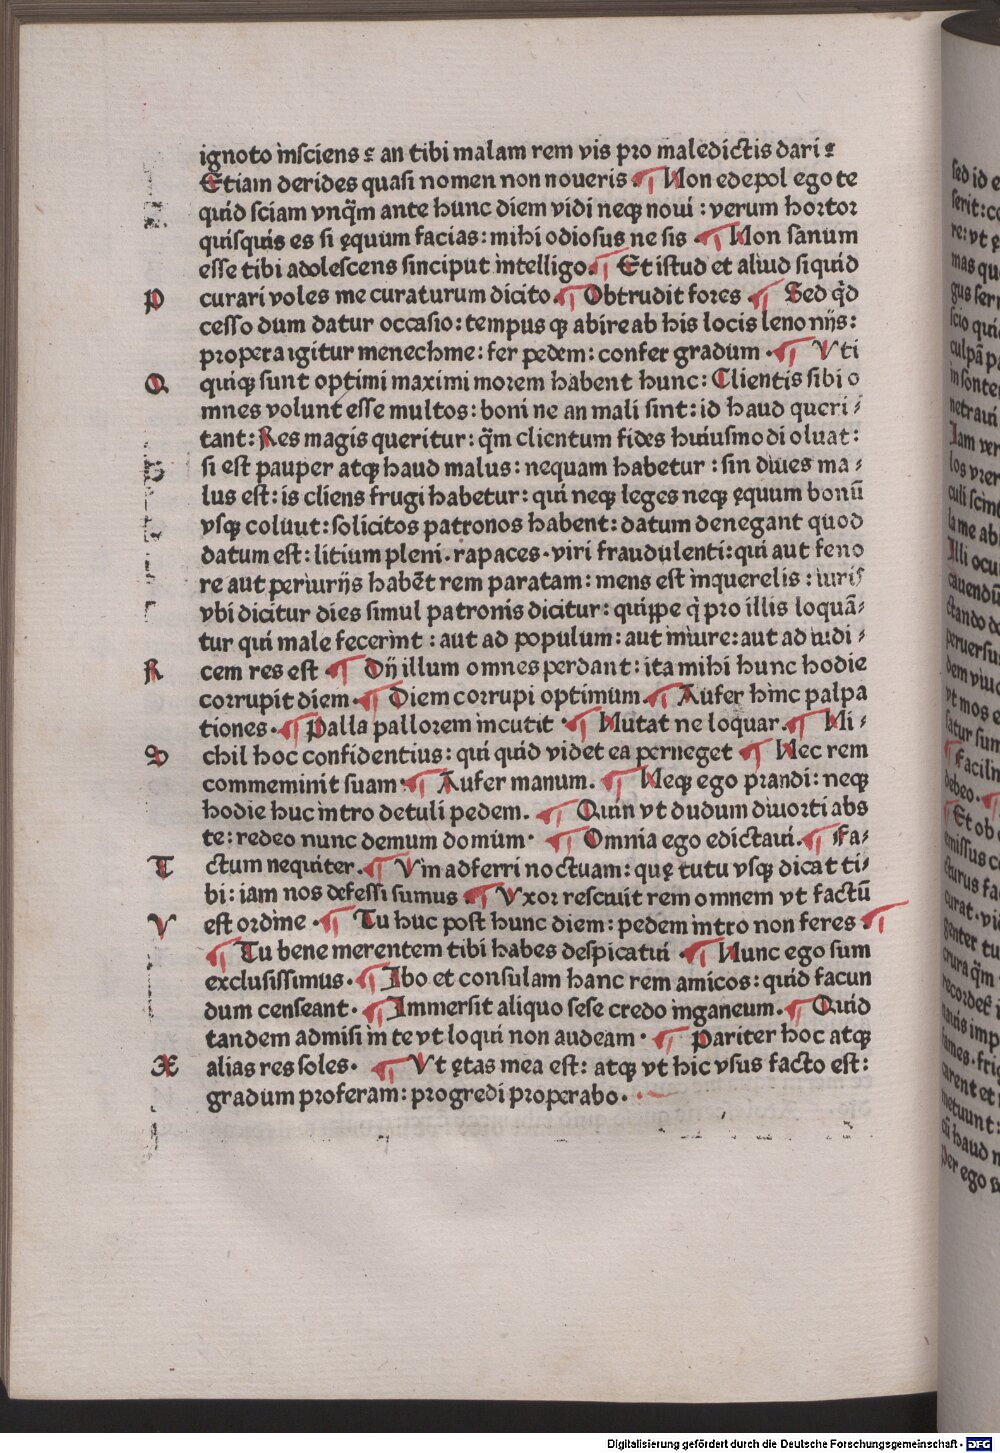 ignoto insciens: an tibi malam rem vis pro maledictis dari:
Etiam derides quasi nomen non noueris ¶ Non edepol ego te
quid sciam vnq̃m ante hunc diem vidi neqȝ noui : verum hortor
quisquis es si ęquum facias: mihi odiosus ne sis ¶ Non sanum
esse tibi adolescens sinciput intelligo. ¶ Et istud et aliud siquid
P curari voles me curaturum dicito. ¶ Obtrudit fores . ¶ Sed q̃d
cesso dum datur occasio: tempus qȝ abire ab his locis lenonijs:
propera igitur menechme: fer pedem: confer gradum . ¶ Vti
Q quiqȝ sunt optimi maximi morem habent hunc: Clientis sibi o
mnes volunt esse multos: boni ne an mali sint: id haud queri⸗
tant: Res magis queritur: q̃m clientum fides huiusmodi oluat:
si est pauper atqȝ haud malus: nequam habetur : sin diues ma⸗
lus est: is cliens frugi habetur: qui neqȝ leges neqȝ ęquum bonũ
vsqȝ coluut: solicitos patronos habent: datum denegant quod
datum est: litium pleni. rapaces. viri fraudulenti: qui aut feno
re aut periurijs habẽt rem paratam: mens est inquerelis : iuris
vbi dicitur dies simul patronis dicitur: quippe q̇ pro illis loquã⸗
tur qui male fecerint : aut ad populum: aut iniure: aut ad iudi⸗
R cem res est . ¶ Dij illum omnes perdant: ita mihi hunc hodie
corrupit diem. ¶ Diem corrupi optimum. ¶ Aufer hinc palpa
tiones. ¶ Palla pallorem incutit . ¶ Nutat ne loquar. ¶ Ni⸗
S chil hoc confidentius: qui quid videt ea perneget ¶ Nec rem
commeminit suam: ¶ Aufer manum. ¶ Neqȝ ego prandi: neqȝ
hodie huc intro detuli pedem. ¶ Quin vt dudum diuorti abs
te: redeo nunc demum domum. ¶ Omnia ego edictaui. ¶ Fa⸗
T ctum nequiter. ¶ Vin adferri noctuam: quę tutu vsqȝ dicat ti⸗
bi: iam nos defessi sumus ¶ Vxor resciuit rem omnem vt factũ
V est ordine . ¶ Tu huc post hunc diem: pedem intro non feres ¶
¶ Tu bene merentem tibi habes despicatui . ¶ Nunc ego sum
exclusissimus. ¶ Ibo et consulam hanc rem amicos: quid facun
dum censeant. ¶ Immersit aliquo sese credo inganeum. ¶ Quid
tandem admisi in te vt loqui non audeam . ¶ Pariter hoc atqȝ
X alias res soles. ¶ Vt ętas mea est: atqȝ vt hic vsus facto est:
gradum proferam: progredi properabo.
Digitalisierung gefördert durch die Deutsche Forschungsgemeinschaft - DFG